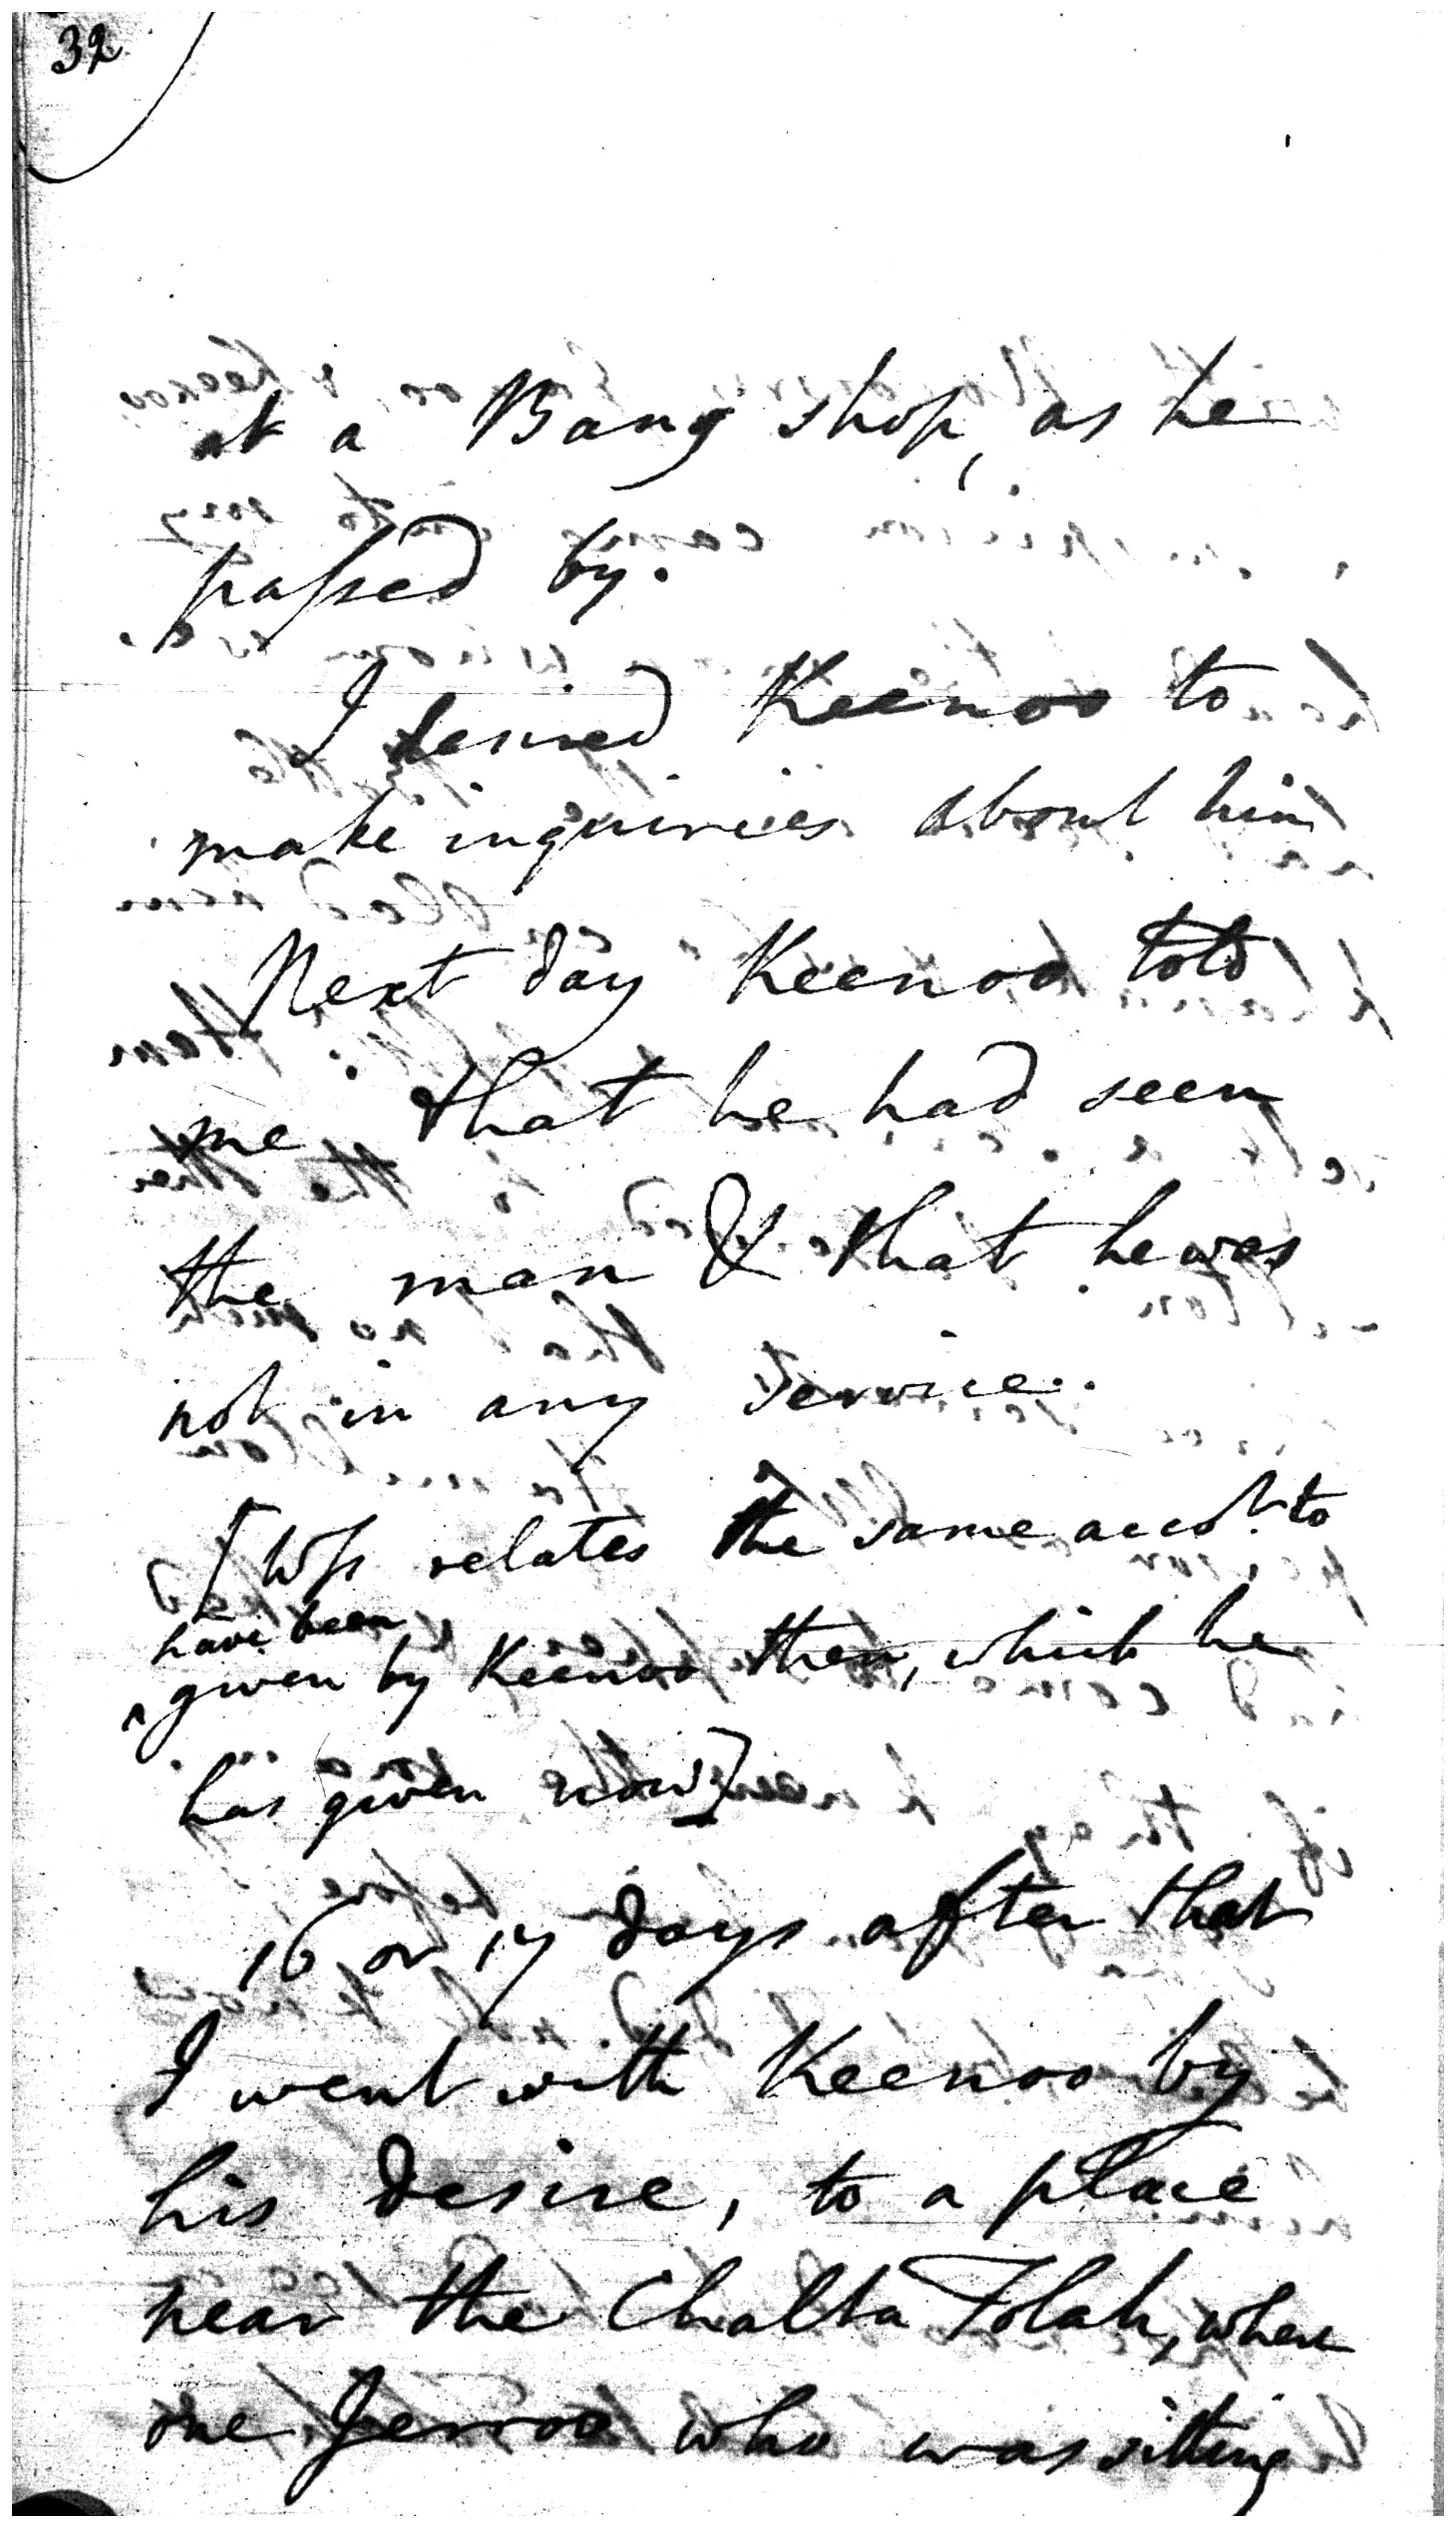 32
at a Bang shop, as he
passed by.
I desired Keenoo to
make inquiries about him
Next day Keenoo told
me that he had seen
the man & that he was
not in any service.
[Wss relates the same accot. to
have been
^ given by Keenoo then, which he
has given now]
16 or 17 days after that
I went with Keenoo by
his desire, to a place
near the Chalta Tolah, where
one Jerroo who was sitting